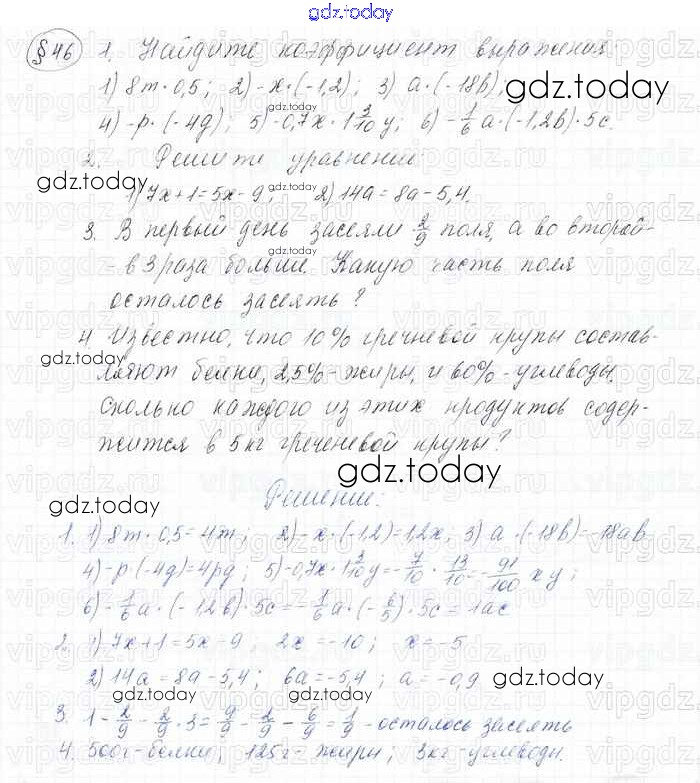 gdz.today
§46 1. Найдите коэффициент выражения
1) 8m·0,5; 2) -x·(-1,2); 3) a·(-18b);
gdz.today
4) -p·(-4q); 5) -0,7x·1 3/10 y; 6) -1/6 a·(-1,2b)·5c.
2. Решите уравнение
gdz.today
1) 7x+1=5x-9; 2) 14a=8a-5,4.
3. В первый день засеяли 2/9 поля, а во второй-
- в 3 раза больше. Какую часть поля
осталось засеять?
4. Известно, что 10% гречневой крупы состав-
gdz.today
ляют белки, 2,5%-жиры, и 60%-углеводы.
Сколько каждого из этих продуктов содер-
жится в 5кг греченевой крупы?
gdz.today
Решение:
1. 1) 8m·0,5=4m; 2) -x·(-1,2)=1,2x; 3) a·(-18b)=-18ab
4) -p·(-4q)=4pq; 5) -0,7x·1 3/10 y=-7/10·13/10=-91/100 xy;
6) -1/6 a·(-1,2b)·5c=-1/6 a·(-6/5)·5c=1ac
2. 1) 7x+1=5x-9; 2x=-10; x=-5
2) 14a=8a-5,4; 6a=-5,4; a=-0,9
gdz.today
gdz.today gdz.today
3. 1-2/9-2/9·3=9/9-2/9-6/9=1/9-осталось засеять
4. 500г-белки; 125г-жиры; 3кг-углеводы.
gdz.today gdz.today